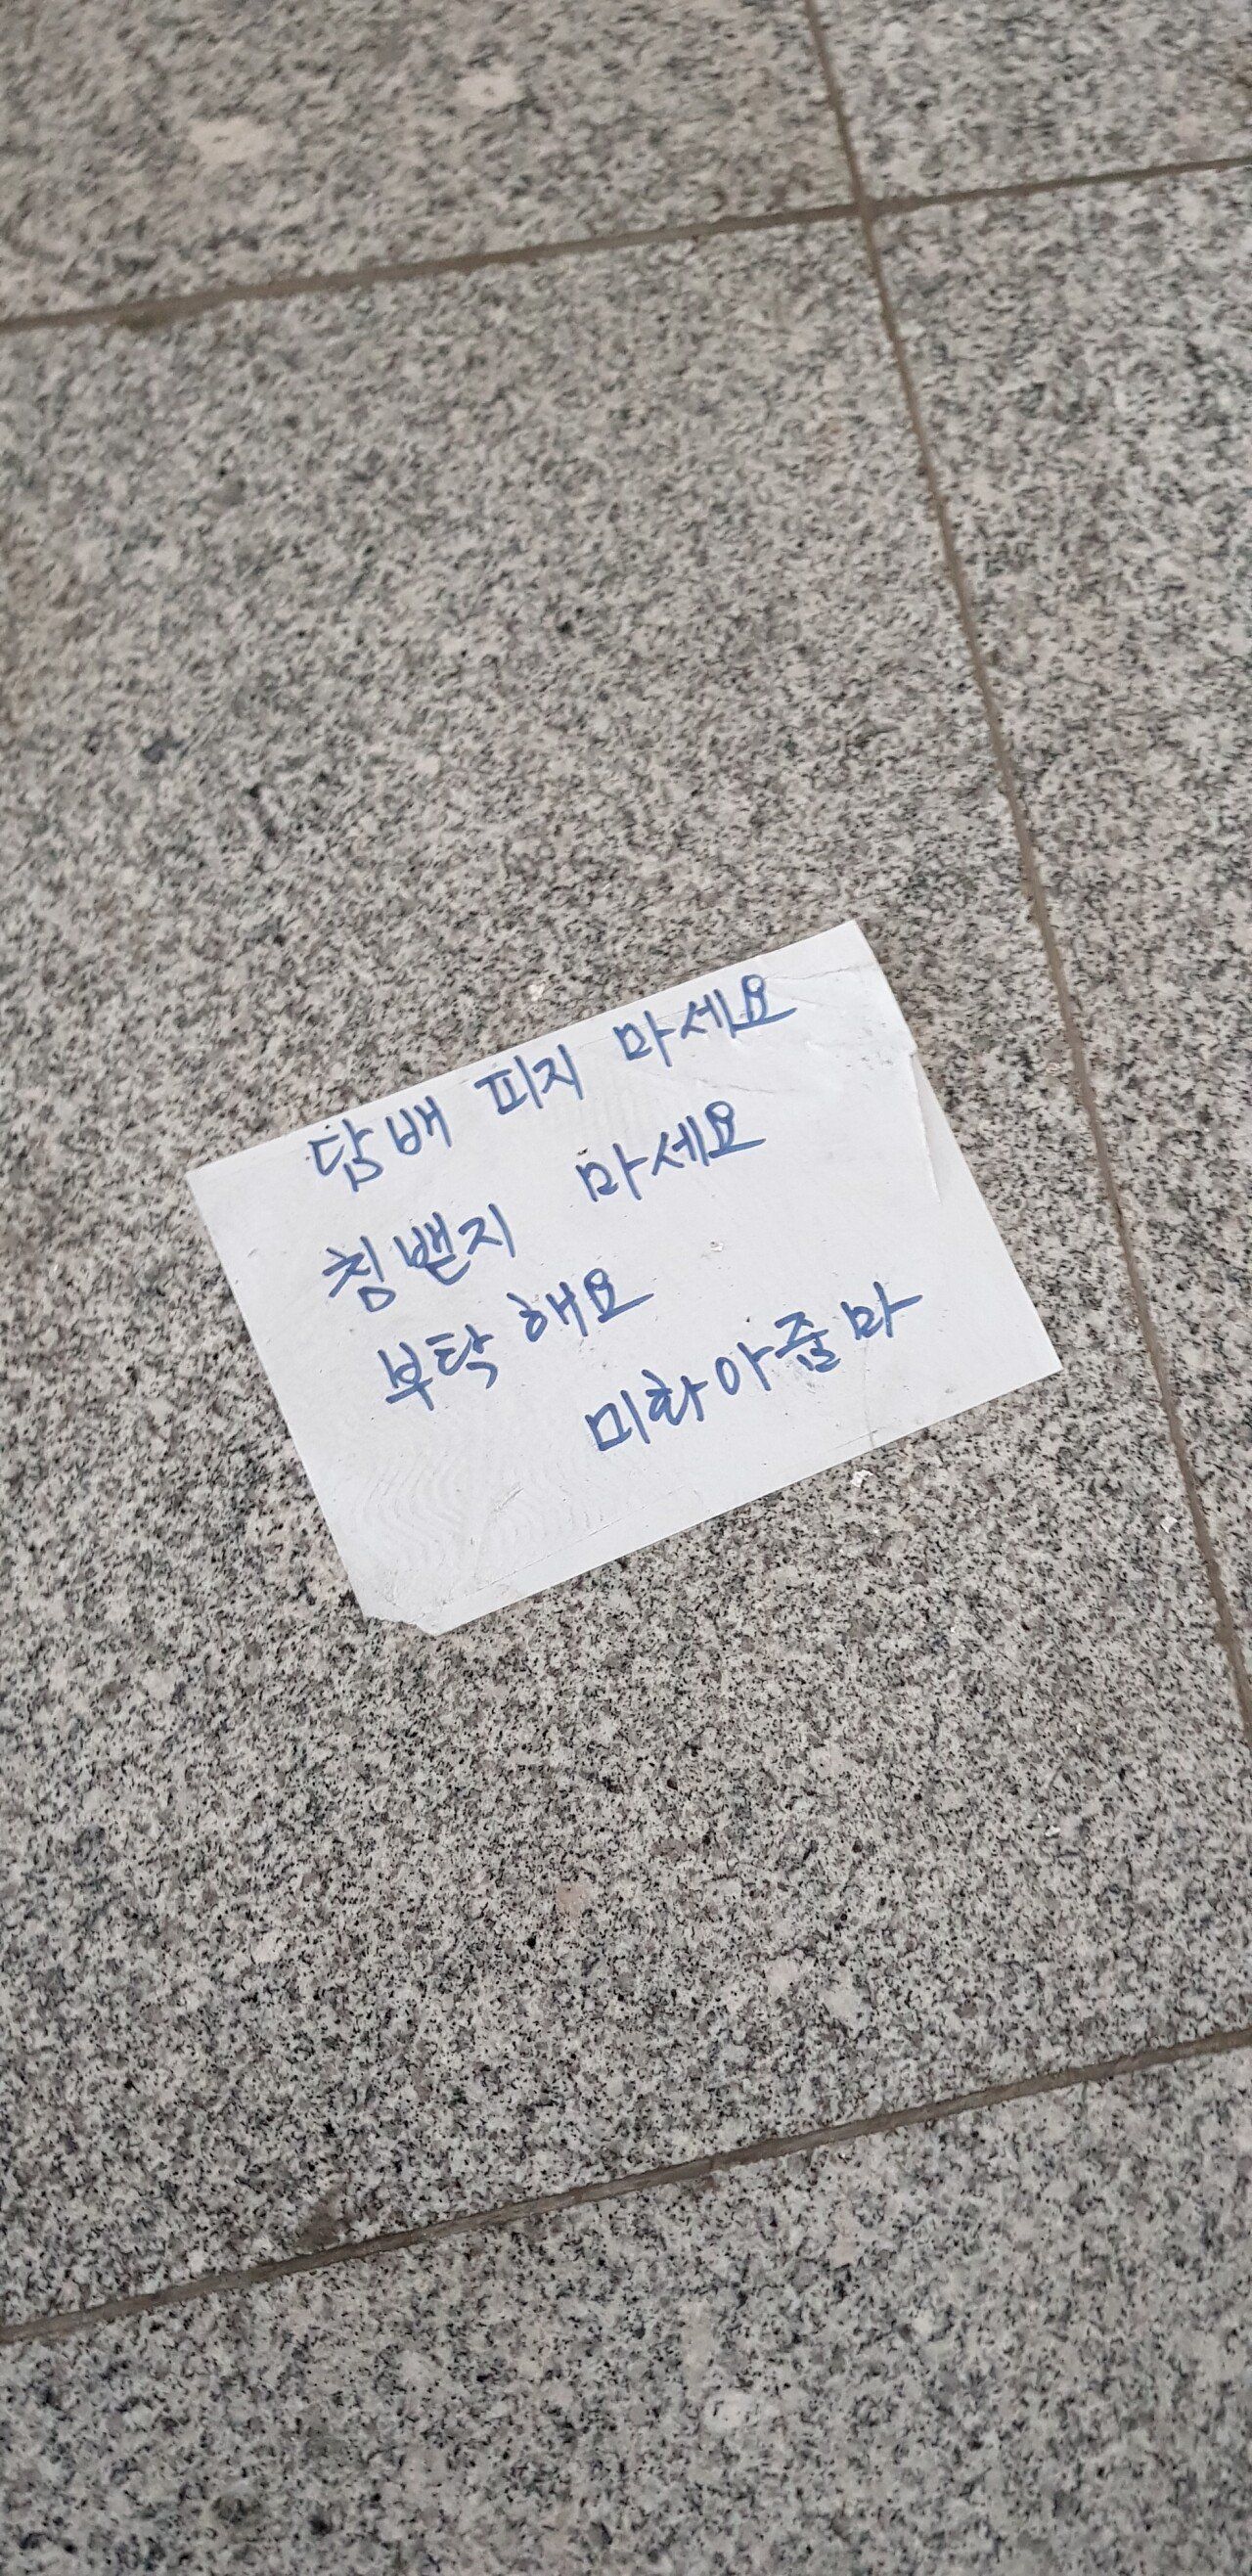 담배 피지 마세요
침뱉지 마세요
부탁해요
미화아줌마